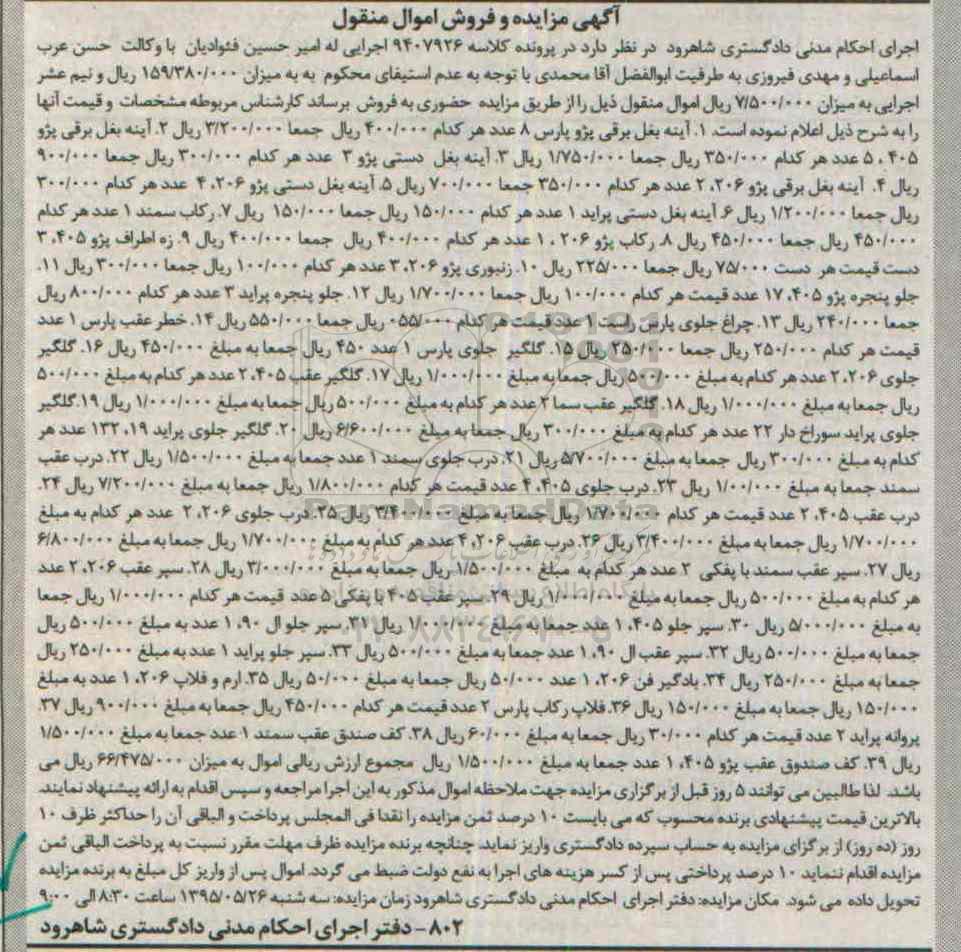 آگهی مزایده و فروش اموال منقول
اجرای احکام مدنی دادگستری شاهرود در نظر دارد در پرونده کلاسه ۹۴۰۷۹۲۶ اجرایی له امیر حسین فئوادیان با وکالت حسن عرب
اسماعیلی و مهدی فیروزی به طرفیت ابوالفضل آقا محمدی با توجه به عدم استیفای محکوم به به میزان ۱۵۹/۳۸۰/۰۰۰ ریال و نیم عشر
اجرایی به میزان ۷/۵۰۰/۰۰۰ ریال اموال منقول ذیل را از طریق مزایده حضوری به فروش برساند کارشناس مربوطه مشخصات و قیمت آنها
را به شرح ذیل اعلام نموده است. ۱. آینه بغل برقی پژو پارس ۸ عدد هر کدام ۴۰۰/۰۰۰ ریال جمعا ۳/۲۰۰/۰۰۰ ریال ۲. آینه بغل برقی پژو
۴۰۵ ، ۵ عدد هر کدام ۳۵۰/۰۰۰ ریال جمعا ۱/۷۵۰/۰۰۰ ریال ۳. آینه بغل دستی پژو ۳ عدد هر کدام ۳۰۰/۰۰۰ ریال جمعا ۹۰۰/۰۰۰
ریال ۴. آینه بغل برقی پژو ۲۰۶، ۲ عدد هر کدام ۳۵۰/۰۰۰ جمعا ۷۰۰/۰۰۰ ریال ۵. آینه بغل دستی پژو ۲۰۶، ۴ عدد هر کدام ۳۰۰/۰۰۰
ریال جمعا ۱/۲۰۰/۰۰۰ ریال ۶. آینه بغل دستی پراید ۱ عدد هر کدام ۱۵۰/۰۰۰ ریال جمعا ۱۵۰/۰۰۰ ریال ۷. رکاب سمند ۱ عدد هر کدام
۴۵۰/۰۰۰ ریال جمعا ۴۵۰/۰۰۰ ریال ۸. رکاب پژو ۲۰۶ ، ۱ عدد هر کدام ۴۰۰/۰۰۰ ریال جمعا ۴۰۰/۰۰۰ ریال ۹. زه اطراف پژو ۴۰۵، ۳
دست قیمت هر دست ۷۵/۰۰۰ ریال جمعا ۲۲۵/۰۰۰ ریال ۱۰. زنبوری پژو ۲۰۶، ۳ عدد هر کدام ۱۰۰/۰۰۰ ریال جمعا ۳۰۰/۰۰۰ ریال ۱۱.
جلو پنجره پژو ۴۰۵، ۱۷ عدد قیمت هر کدام ۱۰۰/۰۰۰ ریال جمعا ۱/۷۰۰/۰۰۰ ریال ۱۲. جلو پنجره پراید ۳ عدد هر کدام ۸۰۰/۰۰۰ ریال
جمعا ۲۴۰/۰۰۰ ریال ۱۳. چراغ جلوی پارس راست ۱ عدد قیمت هر کدام ۰۵۵/۰۰۰ ریال جمعا ۵۵۰/۰۰۰ ریال ۱۴. خطر عقب پارس ۱ عدد
قیمت هر کدام ۲۵۰/۰۰۰ ریال جمعا ۲۵۰/۰۰۰ ریال ۱۵. گلگیر جلوی پارس ۱ عدد ۴۵۰ ریال جمعا به مبلغ ۴۵۰/۰۰۰ ریال ۱۶. گلگیر
جلوی ۲۰۶، ۲ عدد هر کدام به مبلغ ۵۰۰/۰۰۰ ریال جمعا به مبلغ ۱/۰۰۰/۰۰۰ ریال ۱۷. گلگیر عقب ۴۰۵، ۲ عدد هر کدام به مبلغ ۵۰۰/۰۰۰
ریال جمعا به مبلغ ۱/۰۰۰/۰۰۰ ریال ۱۸. گلگیر عقب سما ۲ عدد هر کدام به مبلغ ۵۰۰/۰۰۰ ریال جمعا به مبلغ ۱/۰۰۰/۰۰۰ ریال ۱۹. گلگیر
جلوی پراید سوراخ دار ۲۲ عدد هر کدام به مبلغ ۳۰۰/۰۰۰ ریال جمعا به مبلغ ۶/۶۰۰/۰۰۰ ریال ۲۰. گلگیر جلوی پراید ۱۳۲، ۱۹ عدد هر
کدام به مبلغ ۳۰۰/۰۰۰ ریال جمعا به مبلغ ۵/۷۰۰/۰۰۰ ریال ۲۱. درب جلوی سمند ۱ عدد جمعا به مبلغ ۱/۵۰۰/۰۰۰ ریال ۲۲. درب عقب
سمند جمعا به مبلغ ۱/۰۰/۰۰۰ ریال ۲۳. درب جلوی ۴۰۵، ۴ عدد قیمت هر کدام ۱/۸۰۰/۰۰۰ ریال جمعا به مبلغ ۷/۲۰۰/۰۰۰ ریال ۲۴.
درب عقب ۴۰۵، ۲ عدد قیمت هر کدام ۱/۷۰۰/۰۰۰ ریال جمعا به مبلغ ۳/۴۰۰/۰۰۰ ریال ۲۵. درب جلوی ۲۰۶، ۲ عدد هر کدام به مبلغ
۱/۷۰۰/۰۰۰ ریال جمعا به مبلغ ۳/۴۰۰/۰۰۰ ریال ۲۶. درب عقب ۲۰۶، ۴ عدد هر کدام به مبلغ ۱/۷۰۰/۰۰۰ ریال جمعا به مبلغ ۶/۸۰۰/۰۰۰
ریال ۲۷. سپر عقب سمند با پفکی ۲ عدد هر کدام به مبلغ ۱/۵۰۰/۰۰۰ ریال جمعا به مبلغ ۳/۰۰۰/۰۰۰ ریال ۲۸. سپر عقب ۲۰۶، ۲ عدد
هر کدام به مبلغ ۵۰۰/۰۰۰ ریال جمعا به مبلغ ۱/۰۰۰/۰۰۰ ریال ۲۹. سپر عقب ۴۰۵ با پفکی ۵ عدد قیمت هر کدام ۱/۰۰۰/۰۰۰ ریال جمعا
به مبلغ ۵/۰۰۰/۰۰۰ ریال ۳۰. سپر جلو ۴۰۵، ۱ عدد جمعا به مبلغ ۱/۰۰۰/۰۰۰ ریال ۳۱. سپر جلو ال ۹۰، ۱ عدد به مبلغ ۵۰۰/۰۰۰ ریال
جمعا به مبلغ ۵۰۰/۰۰۰ ریال ۳۲. سپر عقب ال ۹۰، ۱ عدد جمعا به مبلغ ۵۰۰/۰۰۰ ریال ۳۳. سپر جلو پراید ۱ عدد به مبلغ ۲۵۰/۰۰۰ ریال
جمعا به مبلغ ۲۵۰/۰۰۰ ریال ۳۴. بادگیر فن ۲۰۶، ۱ عدد ۵۰/۰۰۰ ریال جمعا به مبلغ ۵۰/۰۰۰ ریال ۳۵. ارم و فلاپ ۲۰۶، ۱ عدد به مبلغ
۱۵۰/۰۰۰ ریال جمعا به مبلغ ۱۵۰/۰۰۰ ریال ۳۶. فلاپ رکاب پارس ۲ عدد قیمت هر کدام ۴۵۰/۰۰۰ ریال جمعا به مبلغ ۹۰۰/۰۰۰ ریال ۳۷.
پروانه پراید ۲ عدد قیمت هر کدام ۳۰/۰۰۰ ریال جمعا به مبلغ ۶۰/۰۰۰ ریال ۳۸. کف صندق عقب سمند ۱ عدد جمعا به مبلغ ۱/۵۰۰/۰۰۰
ریال ۳۹. کف صندوق عقب پژو ۴۰۵، ۱ عدد جمعا به مبلغ ۱/۵۰۰/۰۰۰ ریال مجموع ارزش ریالی اموال به میزان ۶۶/۴۷۵/۰۰۰ ریال می
باشد. لذا طالبین می توانند ۵ روز قبل از برگزاری مزایده جهت ملاحظه اموال مذکور به این اجرا مراجعه و سپس اقدام به ارائه پیشنهاد نمایند.
بالاترین قیمت پیشنهادی برنده محسوب که می بایست ۱۰ درصد ثمن مزایده را نقدا فی المجلس پرداخت و الباقی آن را حداکثر ظرف ۱۰
روز (ده روز) از برگزای مزایده به حساب سپرده دادگستری واریز نماید. چنانچه برنده مزایده ظرف مهلت مقرر نسبت به پرداخت الباقی ثمن
مزایده اقدام ننماید ۱۰ درصد پرداختی پس از کسر هزینه های اجرا به نفع دولت ضبط می گردد. اموال پس از واریز کل مبلغ به برنده مزایده
تحویل داده می شود. مکان مزایده: دفتر اجرای احکام مدنی دادگستری شاهرود زمان مزایده: سه شنبه ۱۳۹۵/۰۵/۲۶ ساعت ۸:۳۰ الی ۹:۰۰
۸۰۲- دفتر اجرای احکام مدنی دادگستری شاهرود